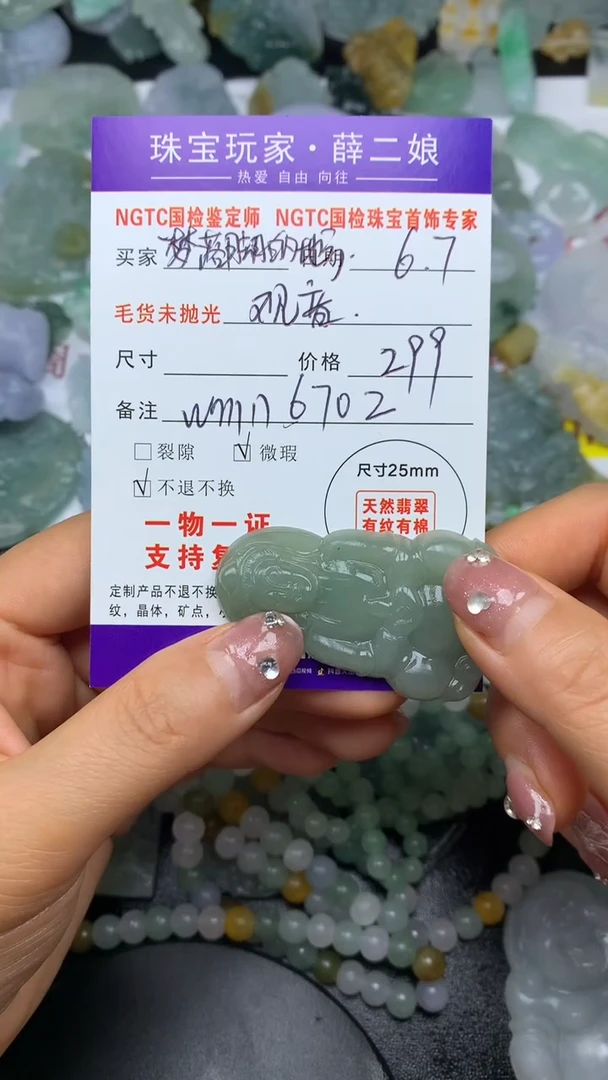 珠宝玩家·薛二娘
热爱 自由 向往
NGTC国检鉴定师 NGTC国检珠宝首饰专家
买家 日期 6.7
毛货未抛光 观音.
尺寸 价格 299
备注 wmn6702
裂隙 微瑕
不退不换
尺寸25mm
天然翡翠
有纹有棉
一物一证
支持复
定制产品不退不换
纹,晶体,矿点,